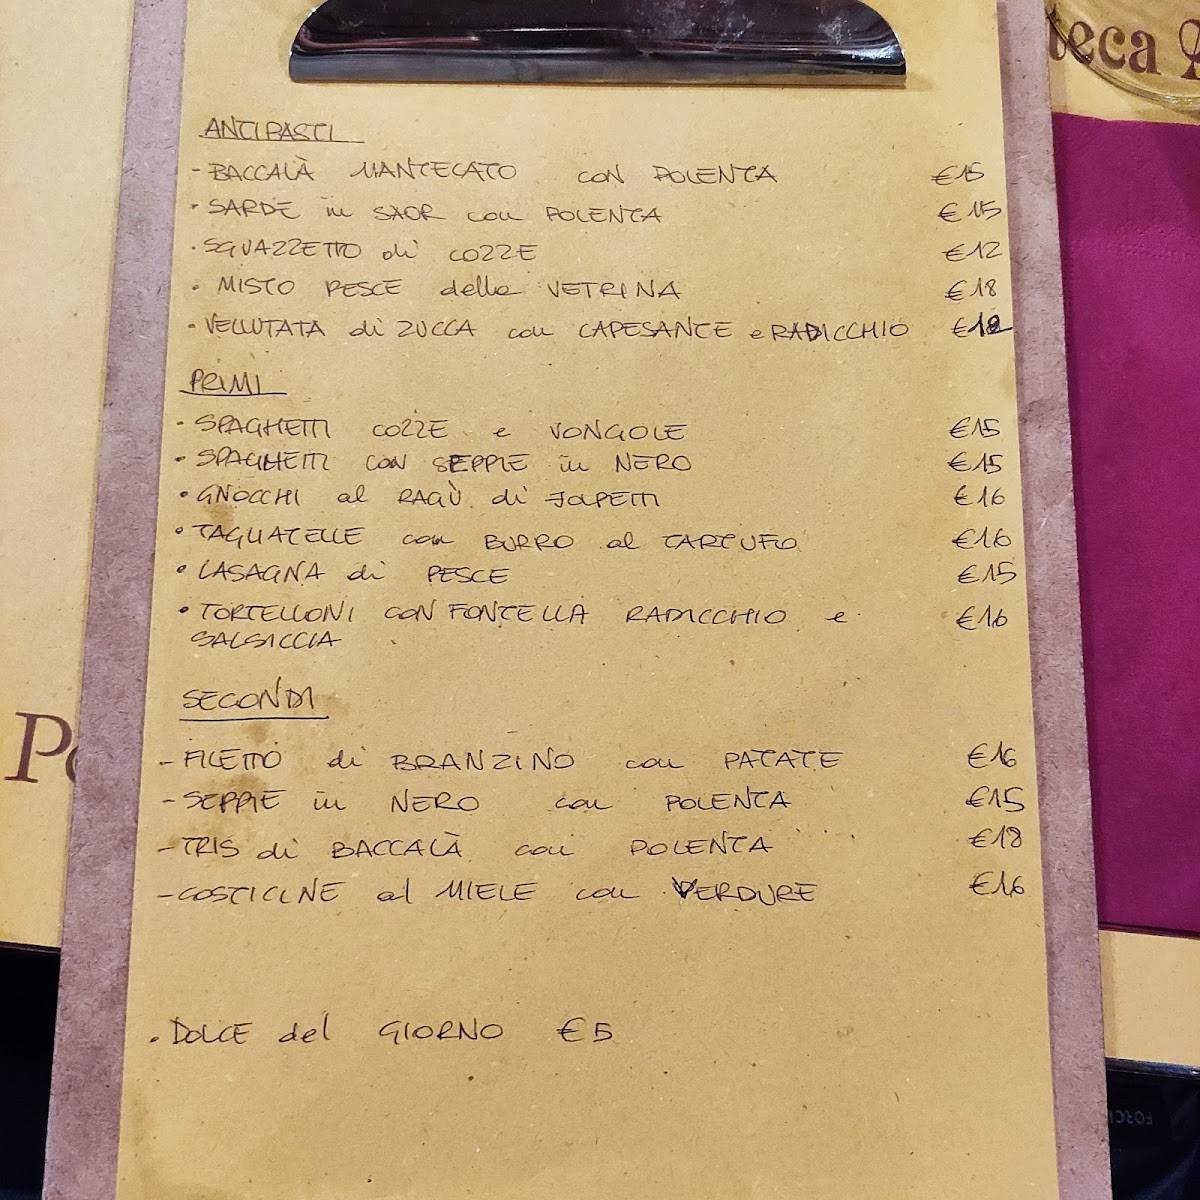 teca
ANTIPASTI
- BACCALÀ MANTECATO con POLENTA €15
· SARDE in SAOR con POLENTA €15
· SGUAZZETTO di COZZE €12
· MISTO PESCE della VETRINA €18
· VELLUTATA di ZUCCA con CAPESANTE e RADICCHIO
PRIMI
· SPAGHETTI COZZE e VONGOLE €15
· SPAGHETTI CON SEPPIE in NERO €15
· GNOCCHI al RAGÙ di €16
· TAGLIATELLE con BURRO al TARTUFO €16
· LASAGNA di PESCE €15
· TORTELLONI CON FONTELLA RADICCHIO e €16
SALSICCIA
SECONDI
- FILETTO di BRANZINO con PATATE €16
- SEPPIE in NERO con POLENTA €15
- TRIS di BACCALÀ con POLENTA €18
- COSTICINE al MIELE con VERDURE €16
· DOLCE del GIORNO €5